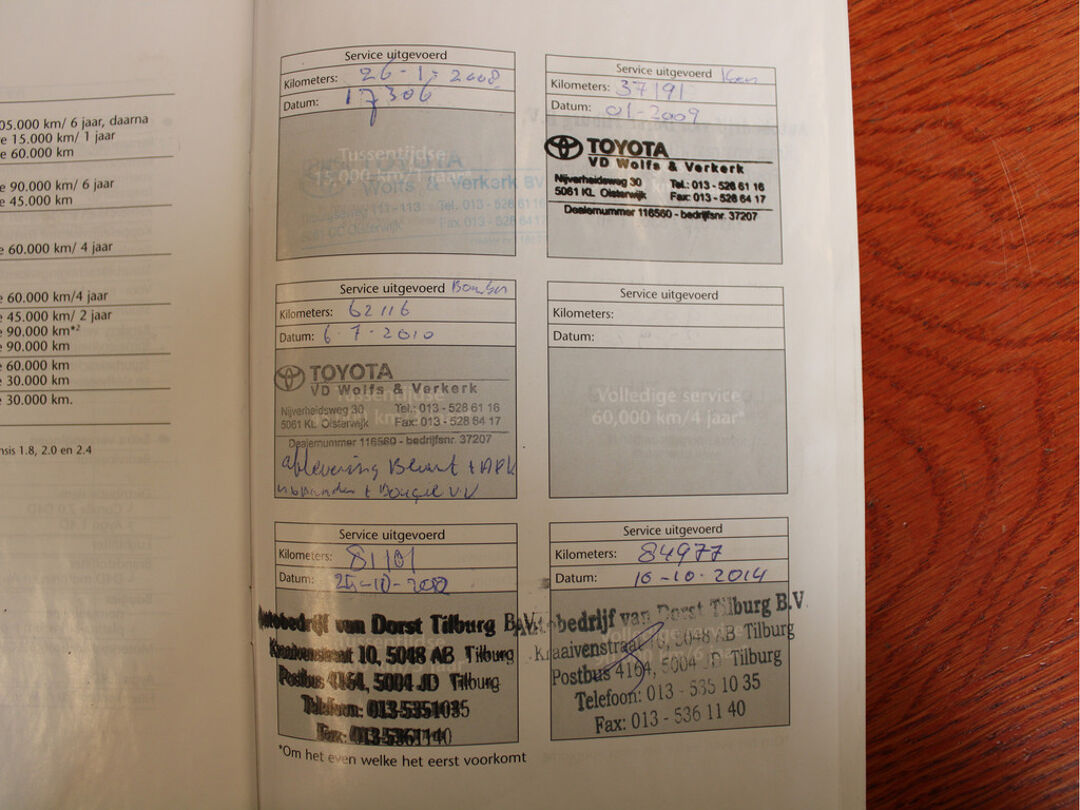 05.000 km/ 6 jaar, daarna
e 15.000 km/ 1 jaar
e 60.000 km
e 90.000 km/ 6 jaar
e 45.000 km
e 60.000 km/ 4 jaar
e 60.000 km/4 jaar
e 45.000 km/ 2 jaar
e 90.000 km*²
e 90.000 km
e 60.000 km
e 30.000 km
e 30.000 km.
nsis 1.8, 2.0 en 2.4
Service uitgevoerd
Kilometers: 26-1-2008
Datum: 17306
Tussentijdse
15.000 km/1 jaar*
Wolfs & Verkerk BV
Service uitgevoerd
Kilometers: 37191
Datum: 01-2009
TOYOTA
VD Wolfs & Verkerk
Nijverheidsweg 30 Tel.: 013 - 528 61 16
5061 KL Oisterwijk Fax: 013 - 528 64 17
Dealernummer 116560 - bedrijfsnr. 37207
Service uitgevoerd
Kilometers: 62116
Datum: 6-7-2010
TOYOTA
VD Wolfs & Verkerk
Nijverheidsweg 30 Tel.: 013 - 528 61 16
5061 KL Oisterwijk Fax: 013 - 528 64 17
Dealernummer 116560 - bedrijfsnr. 37207
aflevering Beurt + APK
Service uitgevoerd
Kilometers:
Datum:
Volledige service
60,000 km/4 jaar*
Service uitgevoerd
Kilometers: 81101
Datum: 25-10-2012
Autobedrijf van Dorst Tilburg B.V.
Kraaivenstraat 10, 5048 AB Tilburg
Postbus 4164, 5004 JD Tilburg
Telefoon: 013-5351035
Fax: 013-5361140
Service uitgevoerd
Kilometers: 84977
Datum: 16-10-2014
Autobedrijf van Dorst Tilburg B.V.
Kraaivenstraat 10, 5048 AB Tilburg
Postbus 4164, 5004 JD Tilburg
Telefoon: 013 - 535 10 35
Fax: 013 - 536 11 40
*Om het even welke het eerst voorkomt